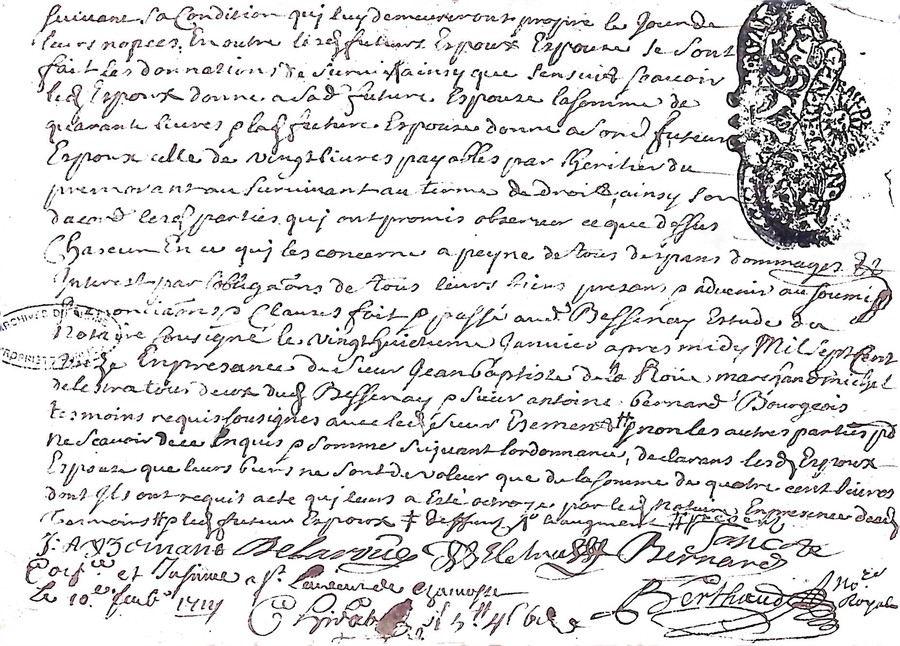 suivant sa Condition qui luy demeureront propre le Jour de
leurs nopces. En outre lesd futurs Espoux Espouse se sont
fait les donnations de survie ainsy que sensuit scavoir
led Espoux donne a sad future Espouse la somme de
quarante livres p lad future Espouse donne a sond futeur
Espoux celle de vingt livres payables par lheritier du
premourant au survivant au terme de droit, ainsy son
dacord lesd parties qui ont promis observer ce que dessus
Chascun En ce qui les concerne a peyne de tous despans dommages &
Interest par obligaons de tous leurs biens presans p advenir au soumis
p Clauses fait p passé aud Bessenay Estude du
Notaire soussigné le vingthuictieme Janvier apres midy Mil Sept Cent
En presance de sieur Jean baptiste de la Roüe marchand michel
delestra tous deux dud Bessenay p sieur antoine bernard Bourgeois
tesmoins requis soussignes avec led sieur p non les autres parties p
ne scavoir de ce Enquis p somme suivant lordonnance, declarans lesd Espoux
Espouse que leurs biens ne sont de valeur que de la somme de quatre cent livres
dont Ils ont requis acte qui leurs a Esté octroyé par led Notaire En presence desd
Tesmoins p led futeur Espoux
Delaroüe Delestra Bernard
et Insinué a St Laurent de Chamosset
Le 10e feubr 1714
Berthaud No.re Royal
ARCHIVES DU
PROPRIETE